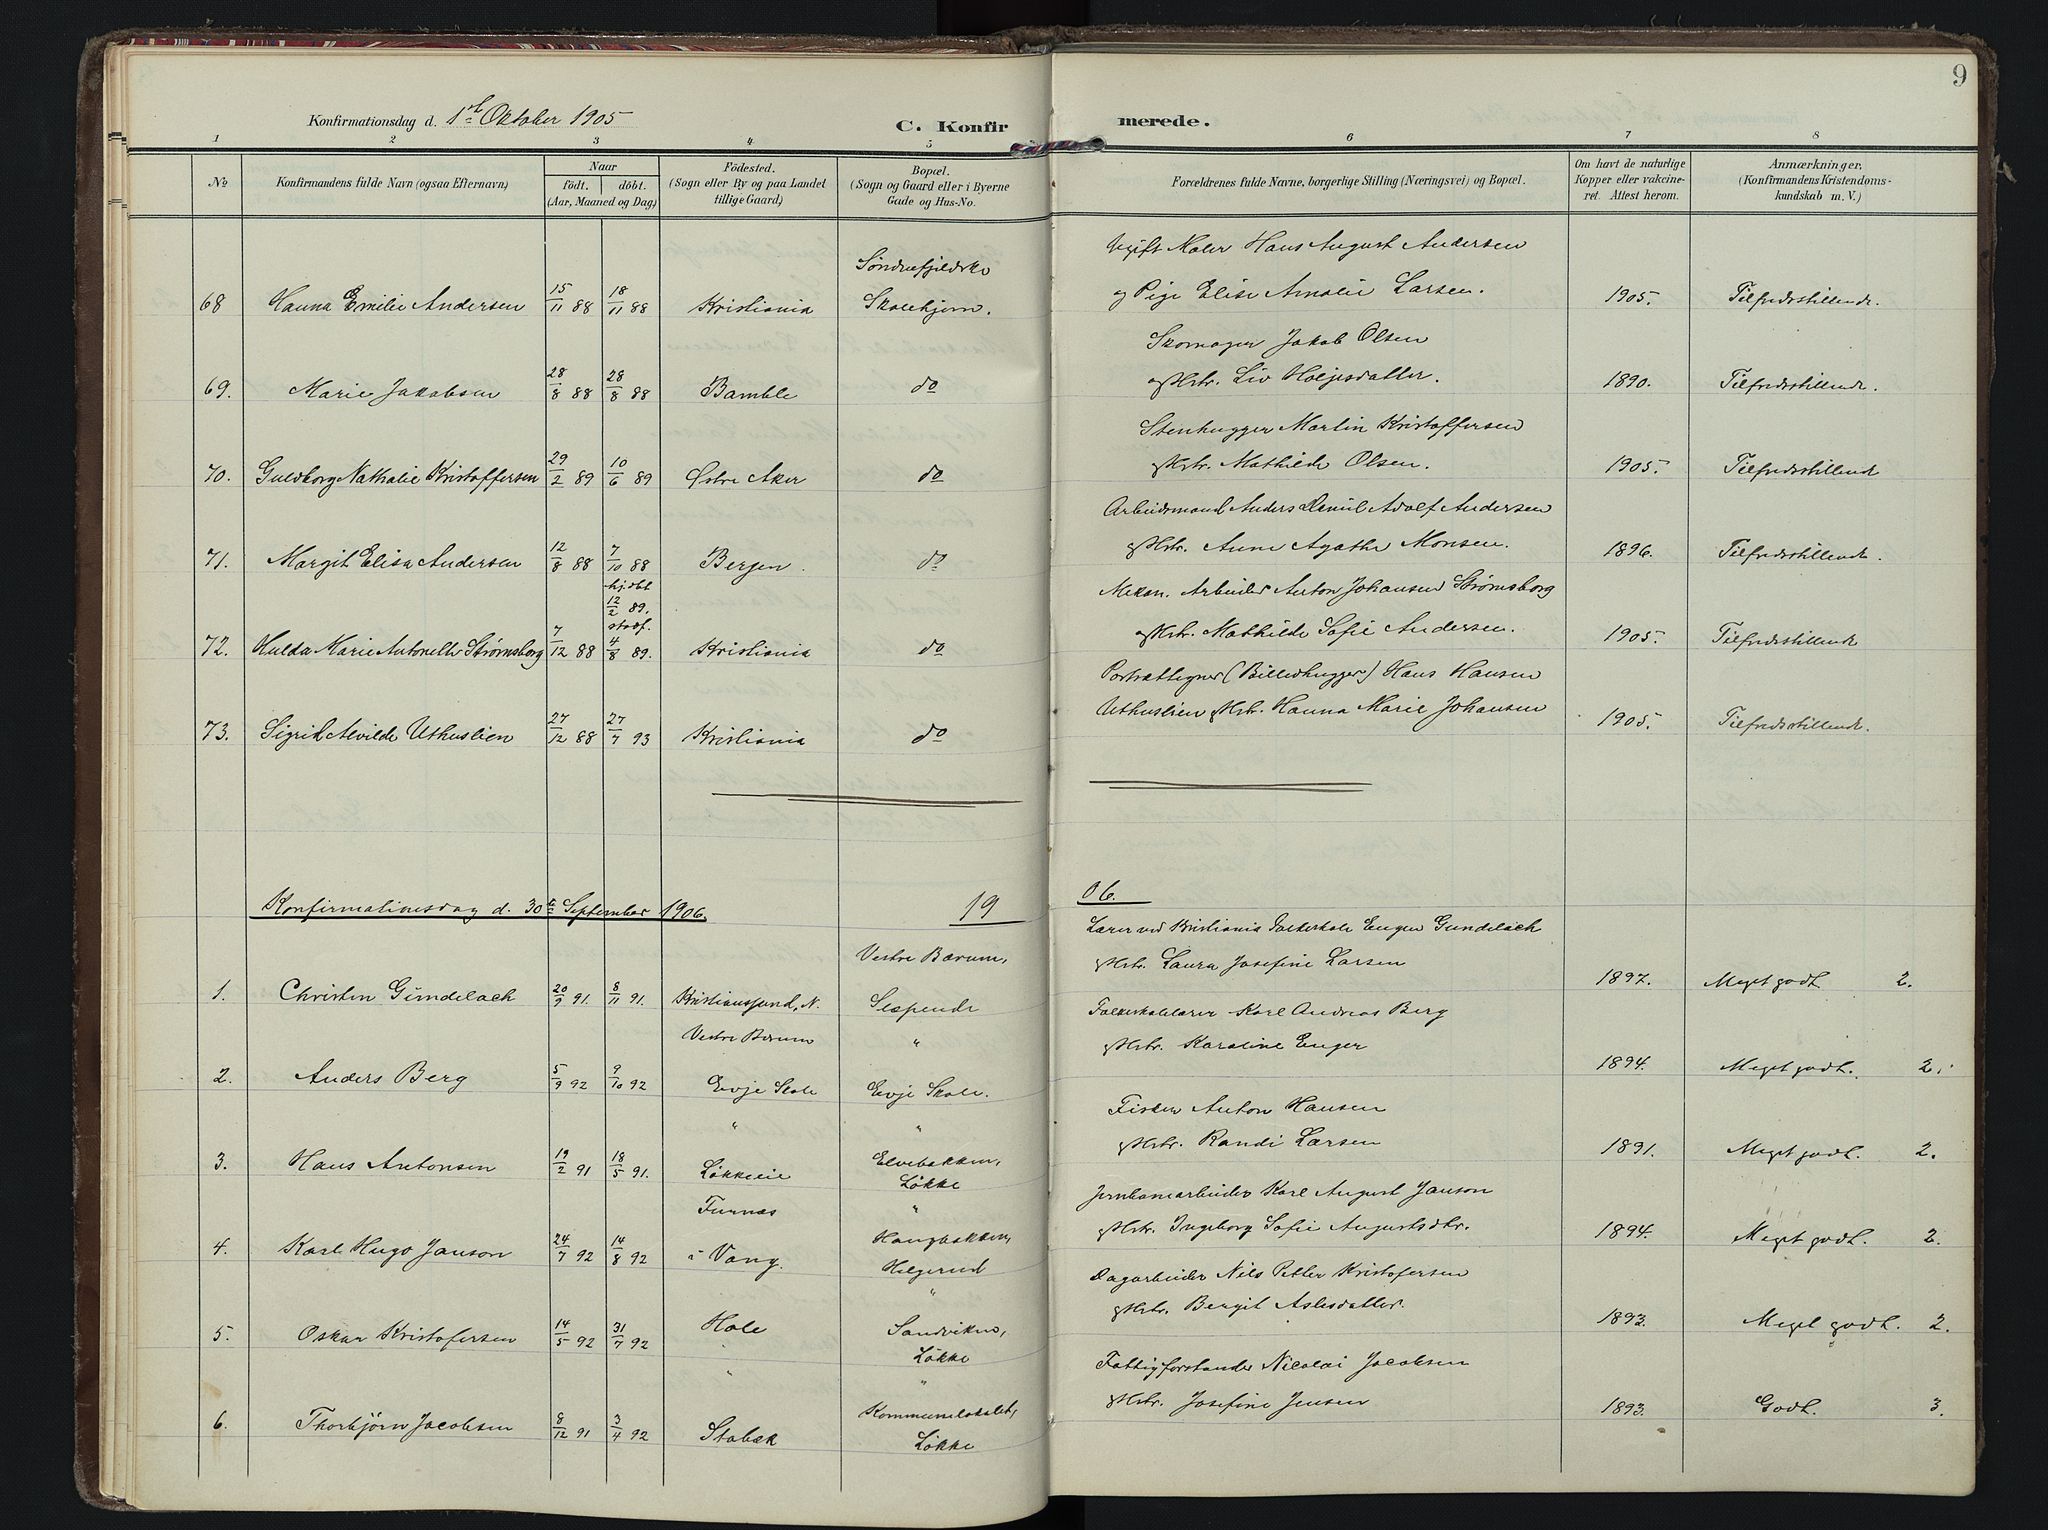 9
Konfirmationsdag d. 1ste Oktober 1905
C. Konfirmerede.
1 2 3 4 5 6 7 8
No
Konfirmandens fulde Navn (ogsaa Efternavn)
Naar
födt. döbt.
(Aar, Maaned og Dag)
Födested.
(Sogn eller By og paa Landet
tillige Gaard)
Bopæl.
(Sogn og Gaard eller i Byerne
Gade og Hus-No.
Forældrenes fulde Navne, borgerlige Stilling (Næringsvei) og Bopæl.
Om havt de naturlige
Kopper eller vakcine-
ret. Attest herom.
Anmærkninger,
(Konfirmandens Kristendoms-
kundskab m. V.)
Ugift Maler Hans August Andersen
Søndrefjeldske
68 Hanna Emilie Andersen 15/11 88 18/11 88 Kristiania Skolehjem. og Pige Elise Amalie Larsen. 1905. Tilfredsstillende.
Skomager Jakob Olsen
69. Marie Jakobsen 28/8 88 28/8 88 Bamble do og Hstr. Liv Høljesdatter. 1890. Tilfredsstillende.
Stenhugger Martin Kristoffersen
70. Guldborg Nathalie Kristoffersen 29/2 89 10/6 89 Østre Aker do og Hstr. Mathilde Olsen. 1905. Tilfredsstillende
Arbeidsmand Anders Daniel Adolf Andersen
71. Margit Elisa Andersen 12/8 88 7/10 88 Bergen. do og Hstr. Anne Agathe Monsen. 1896. Tilfredsstillende.
hj.dbt
12/2 89.
stadf.
Mekan. Arbeider Anton Johansen Strømsborg
72. Hulda Marie Antonette Strømsborg 7/12 88 4/8 89. Kristiania do og Hstr. Mathilde Sofie Andersen. 1905. Tilfredsstillende
Portrættegner (Billedhugger) Hans Hansen
73. Sigrid Alvilde Uthuslien 27/12 88 27/7 93 Kristiania do Uthuslien og Hstr. Hanna Marie Johansen 1905. Tilfredsstillende.
Konfirmationsdag d. 30te September 1906. 19 06.
Lærer ved Kristiania Folkeskole Eugen Gundelach
Vestre Bærum,
1. Christen Gundelach 20/9 91. 8/11 91. Kristianssund, N. Slependen og Hstr. Laura Josefine Larsen 1897. Meget godt 2.
Vestre Bærum " Folkeskolelærer Karl Andreas Berg
2. Anders Berg 5/9 92 9/10 92 Evje Skole Evje Skole. og Hstr. Karoline Enger 1894. Meget godt. 2.
" " Fisker Anton Hansen
3. Hans Antonsen 19/2 91 18/5 91. Løkkeeie Elvebakken, Løkke og Hstr. Randi Larsen 1891. Meget godt. 2.
Furnæs " Jernbanearbeider Karl August Janson
4. Karl Hugo Janson 24/7 92 14/8 92 i Vang. Haugbakken, Helgerud og Hstr. Ingeborg Sofie Augustsdtr. 1894. Meget godt. 2.
" Dagarbeider Nils Petter Kristofersen
5. Oskar Kristofersen 14/5 92 31/7 92 Hole Sandviken, Løkke og Hstr. Bergit Aslesdatter. 1893. Meget godt. 2.
" " Fattigforstander Nicolai Jacobsen
6. Thorbjørn Jacobsen 8/12 91 3/4 92 Stabæk Kommunelokalet, Løkke og Hstr. Josefine Jensen 1893. Godt. 3.